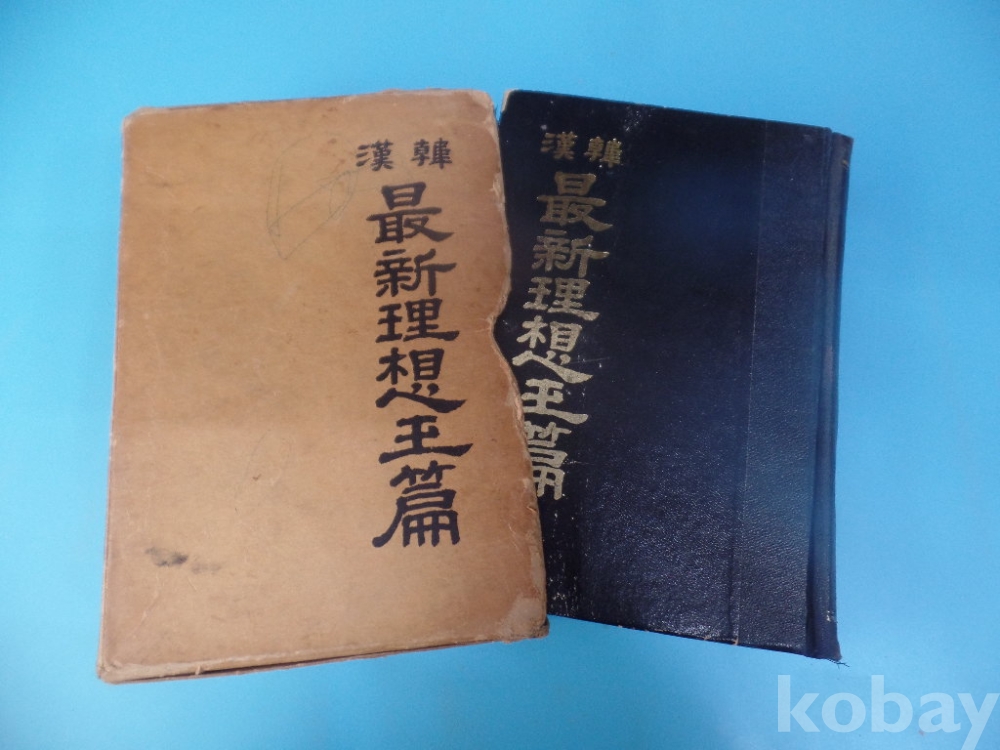 漢韓
最新理想玉篇
漢韓
最新理想玉篇
kobay